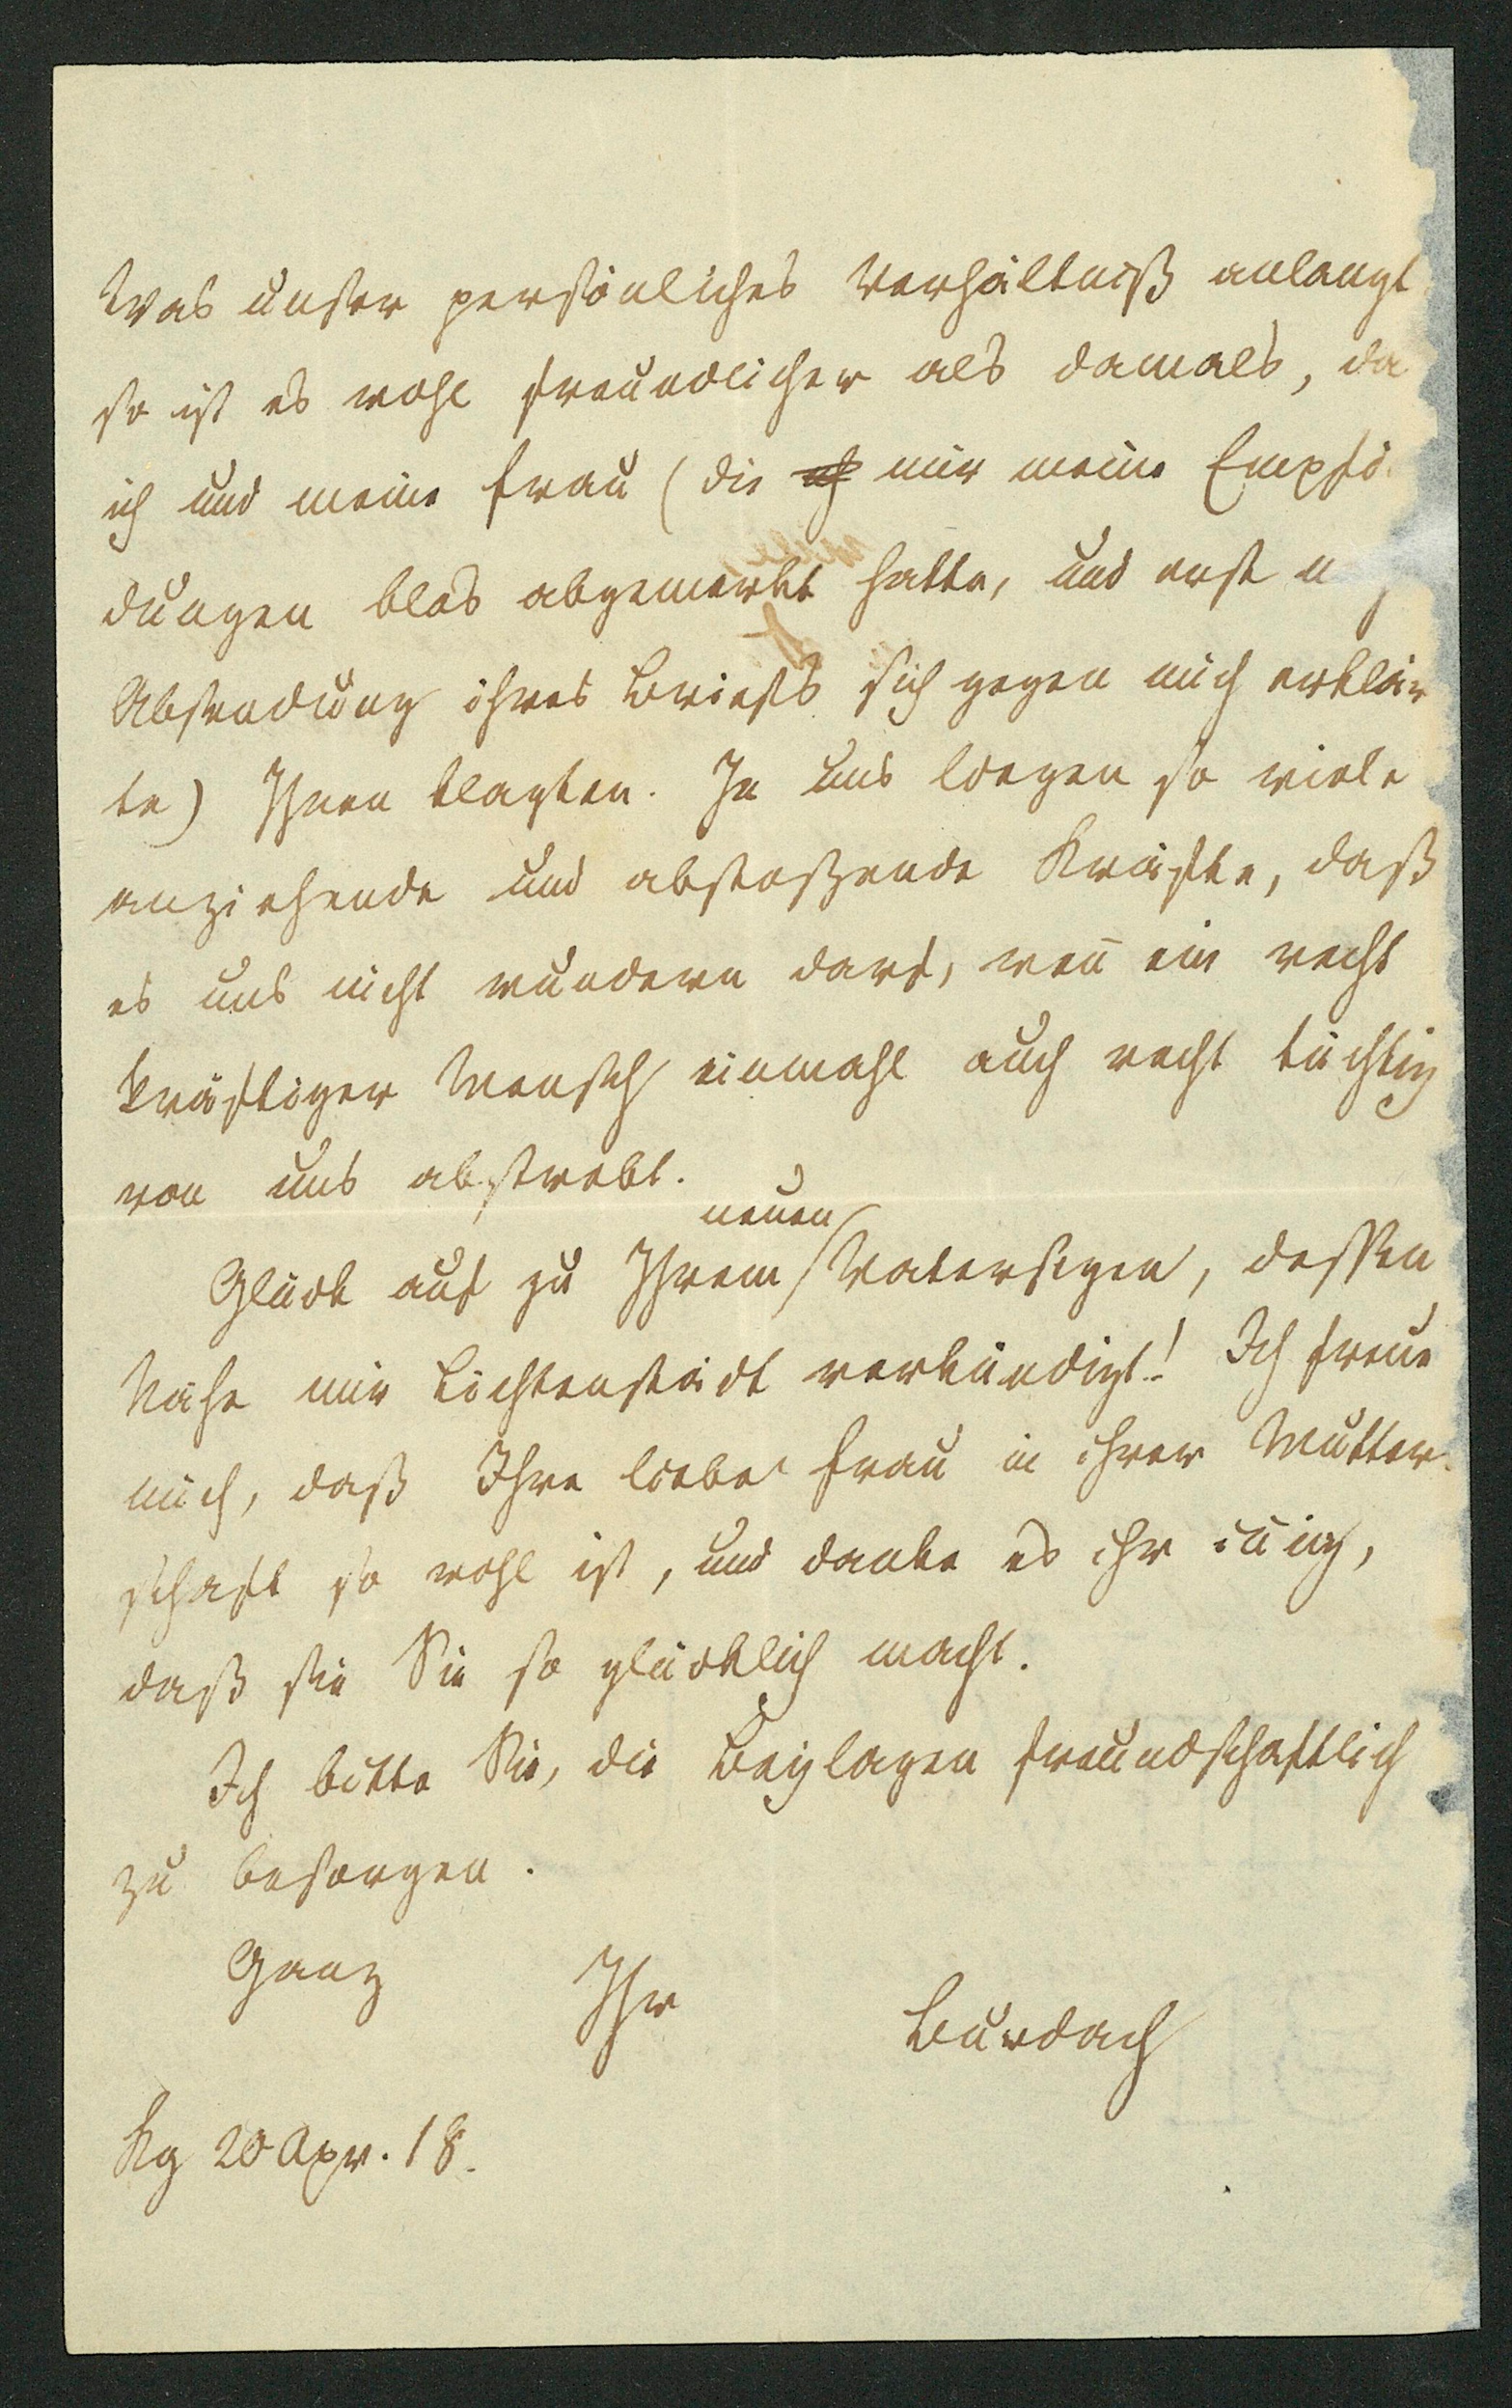 Was unser persönliches Verhältniß anlangt
so ist es wohl freundlicher als damals, da
ich und meine Frau (die mir meine Empfi
dungen blos abgemerkt hatte, und erst n
Absendung ihres Briefs sich gegen mich erklär
te) Ihnen klagten. In uns liegen so viele
anziehende und abstoßende Kräfte, daß
es uns nicht wundern darf, weñ ein recht
kräftiger Mensch einmahl auch recht tüchtig
von uns abstrebt.
neuen
Glück auf zu Ihrem Vatersegen, dessen
Nähe mir Lichtenstädt verkündigt! Ich freue
mich, daß Ihre liebe Frau in ihrer Mutter-
schaft so wohl ist, und danke es ihr iñig,
daß sie Sie so glücklich macht.
Ich bitte Sie, die Beylagen freundschaftlich
zu besorgen.
Ganz Ihr Burdach
Kg 20 Apr. 18.